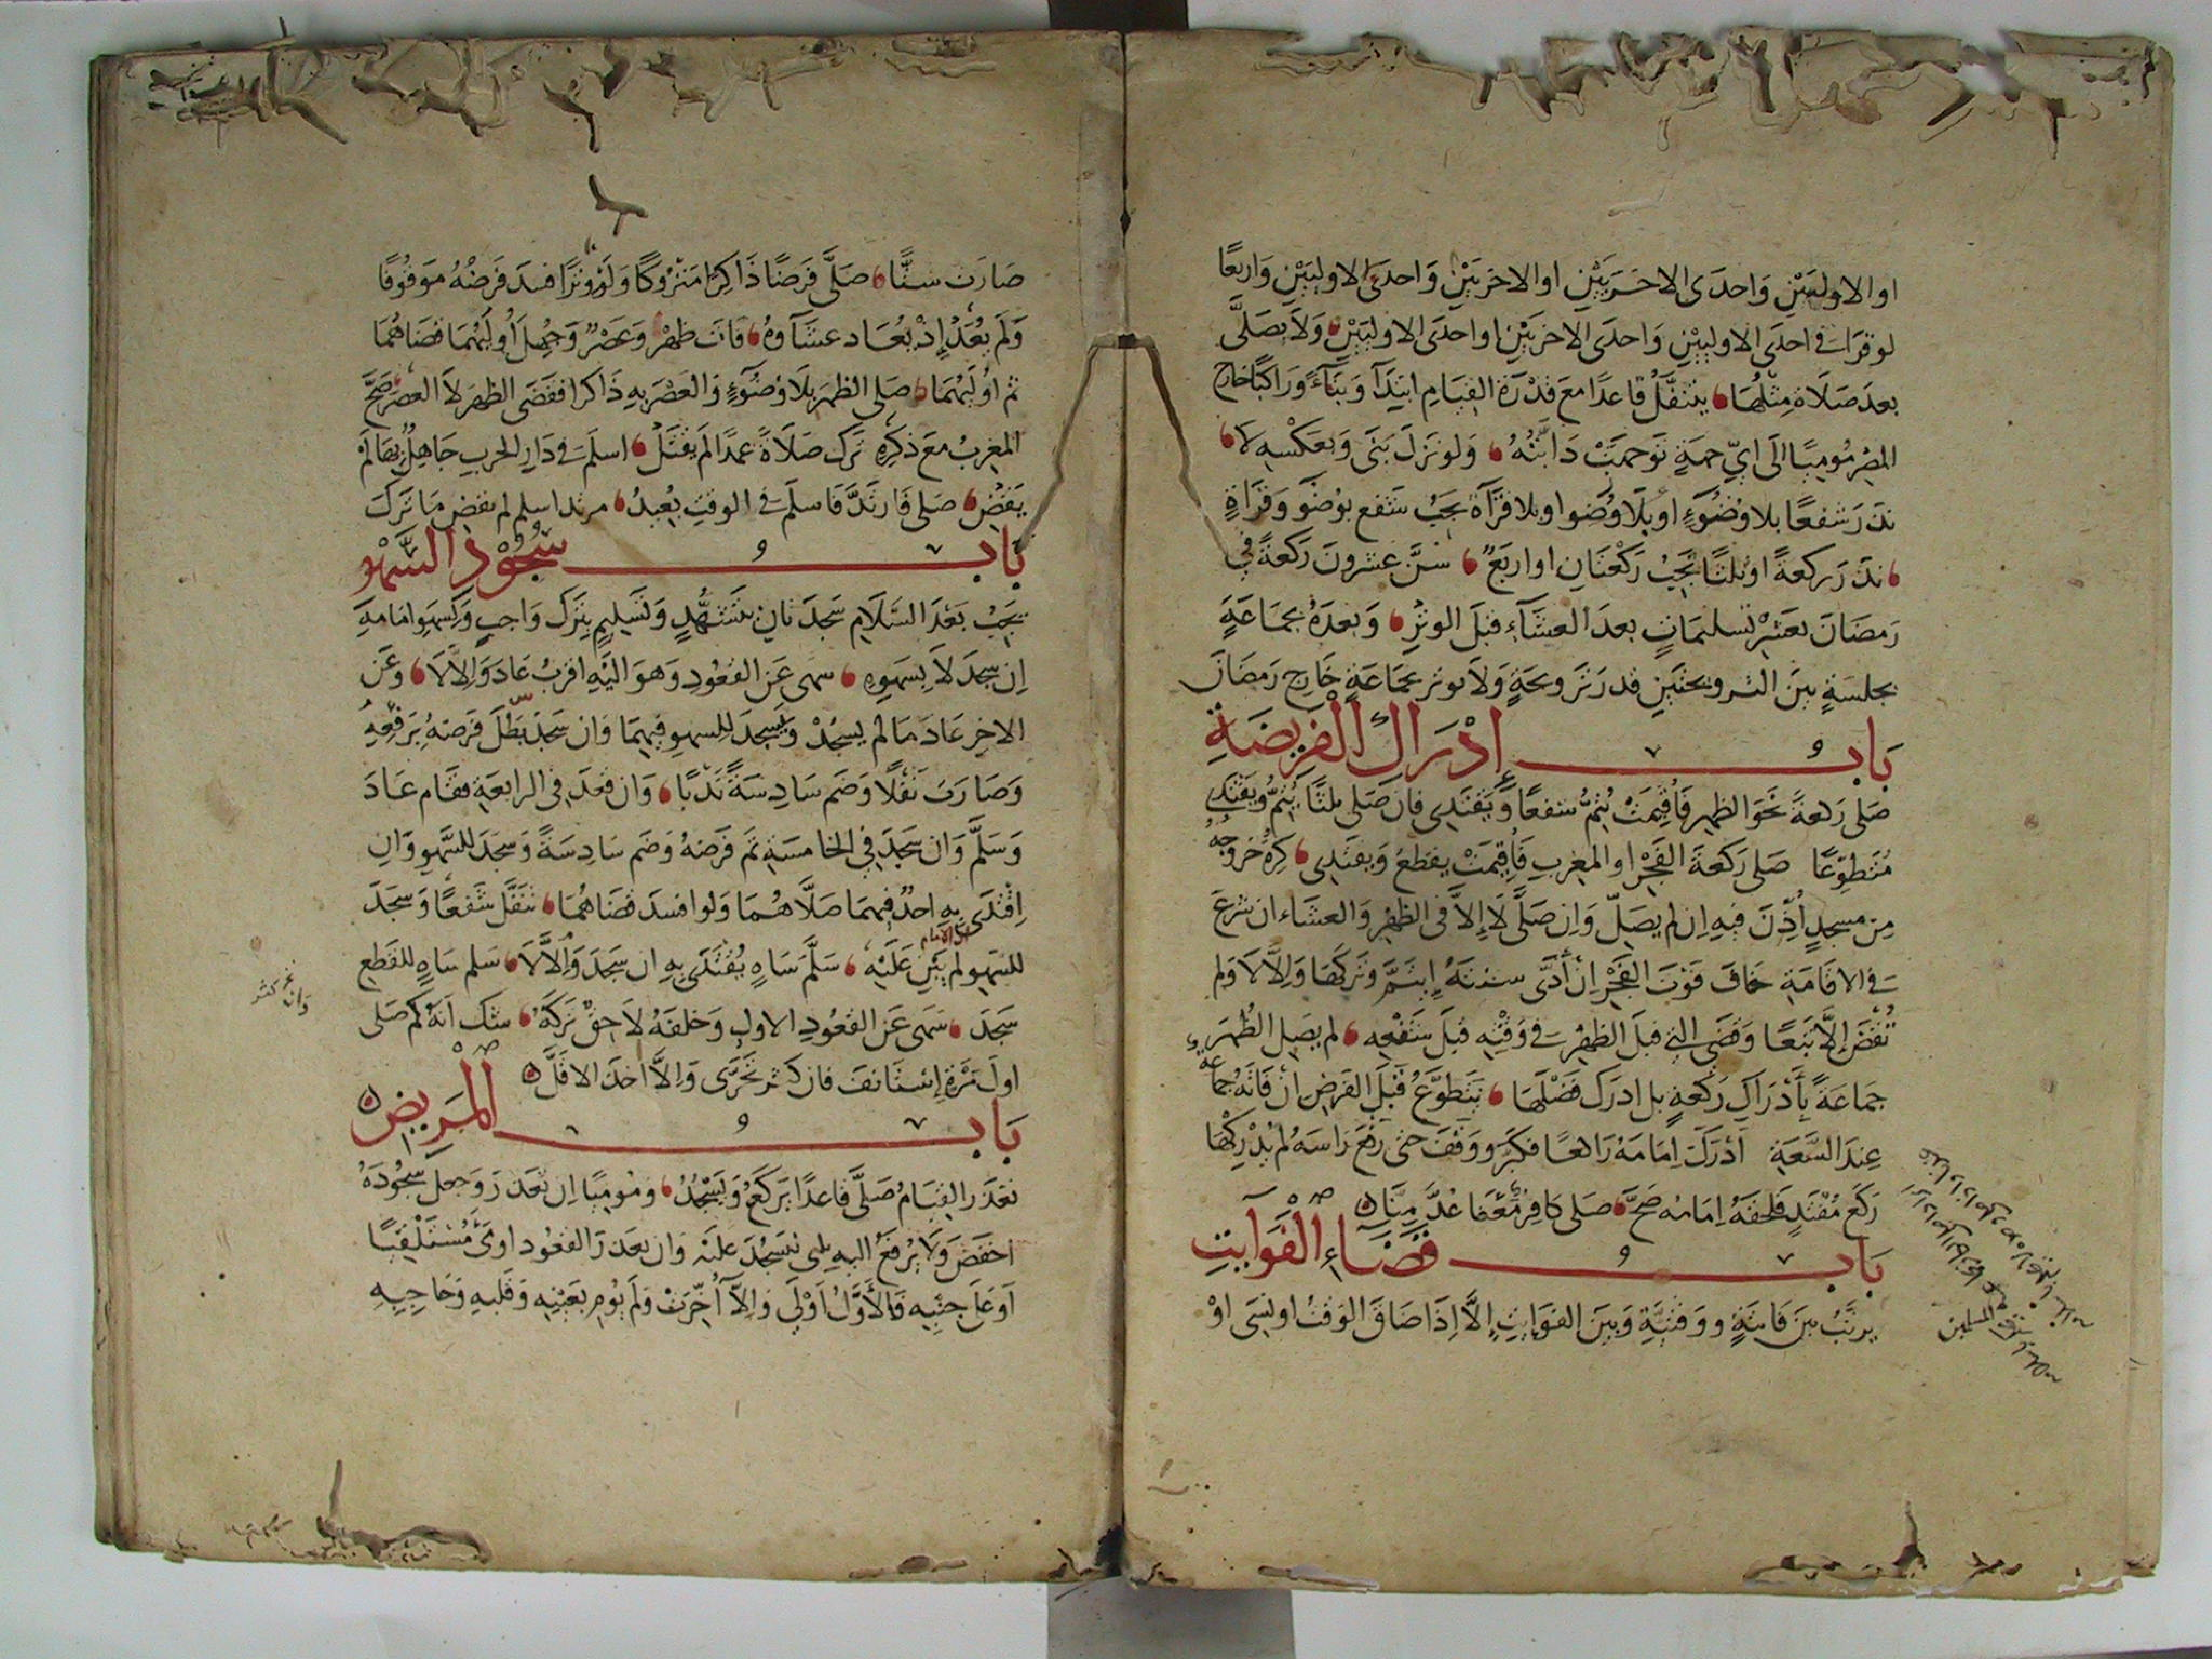 او الاوليين واحدى الاخريين او الاخريين واحدى الاوليين واربعا
لو قرا في احدى الاوليين واحدى الاخريين او احدى الاوليين ولا يصلى
بعد صلاة مثلها يتنفل قاعدا مع قدرة القيام ابتدآ وبنآء وراكبا خارج
المصر موميا الى اي جهة توجهت دابته ولو نزل بنى وبعكسه لا
نذر شفعا بلا وضوء او بلا وضوا وبلا قرآة يجب شفع بوضو وقراة
نذر ركعة او ثلثا يجب ركعتان او اربع سن عشرون ركعة في
رمضان بعشر تسليمات بعد العشآء قبل الوتر وبعده بجماعة
بجلسة بين الترويحتين قدر ترويحة ولا يوتر بجماعة خارج رمضان
باب إدراك الفريضة
صلى ركعة نحو الظهر فاقيمت يتم شفعا ويقتدى فان صلى ثلثا يتم ويقتدى
متطوعا صلى ركعة الفجر او المغرب فاقيمت يقطع ويقتدى كره خروجه
من مسجد أذن فيه ان لم يصل وان صلى لا إلا في الظهر والعشاء ان شرع
في الاقامة خاف فوت الفجر ان أدى سنته إيتم وتركها وإلا لا ولم
تقض إلا تبعا وقضى التي قبل الظهر في وقته قبل شفعه لم يصل الظهر
جماعة بأدراك ركعة بل ادرك فضلها يتطوع قبل الفرض ان فاته جماعة
عند السعة أدرك امامه راكعا فكبر ووقف حتى رفع راسه لم يدركها
ركع مقتد فلحقه امامه صح صلى كافر معنا عد منا
باب قضاء الفوايت
يرتب بين فايتة ووقتية وبين الفوايت إلا إذا ضاق الوقت او نسى او
صارت ستا صلى فرضا ذاكرا متروكا ولو وترا فسد فرضه موقوفا
ولم يعد إذ يعاد عشآوه فات ظهر وعصر وجهل أوليهما قضاهما
ثم اوليهما صلى الظهر بلا وضوء والعصر به ذاكرا فقضى الظهر لا العصر صح
المغرب مع ذكره ترك صلاة عمدا لم يقتل اسلم في دار الحرب جاهل بها لم
يقض صلى فارتد فاسلم في الوقت يعيد مرتد اسلم لم يقض ما ترك
باب سجود السهو
يجب بعد السلام سجدتان بتشهد وتسليم بترك واجب وبسهو امامه
ان سجد لا بسهوه سهى عن القعود وهو اليه اقرب عاد والا لا وعن
الاخر عاد ما لم يسجد ويسجد للسهو فيهما وان سجد بطل فرضه برفعه
وصارت نفلا وضم سادسة ندبا وان قعد في الرابعة فقام عاد
وسلم وان سجد في الخامسة تم فرضه وضم سادسة وسجد للسهو وان
اقتدى به احد فيهما صلاهما ولو افسد قضاهما تنفل شفعا وسجد
للسهو لم يبن عليه سلم ساه يقتدى به ان سجد والا لا سلم ساه للقطع
سجد سهى عن القعود الاول وخلفه لاحق تركه شك انه كم صلى
اول مرة إستانف فان كثر تحرى والا أخذ الاقل
باب المريض
تعذر القيام صلى قاعدا يركع ويسجد وموميا ان تعذر وجعل سجوده
اخفض ولا يرفع اليه شي يسجد عليه وان تعذر القعود اومى مستلقيا
او على جنبه فالأول اولى وإلا أخرت ولم يوم بعينه وقلبه وحاجبيه